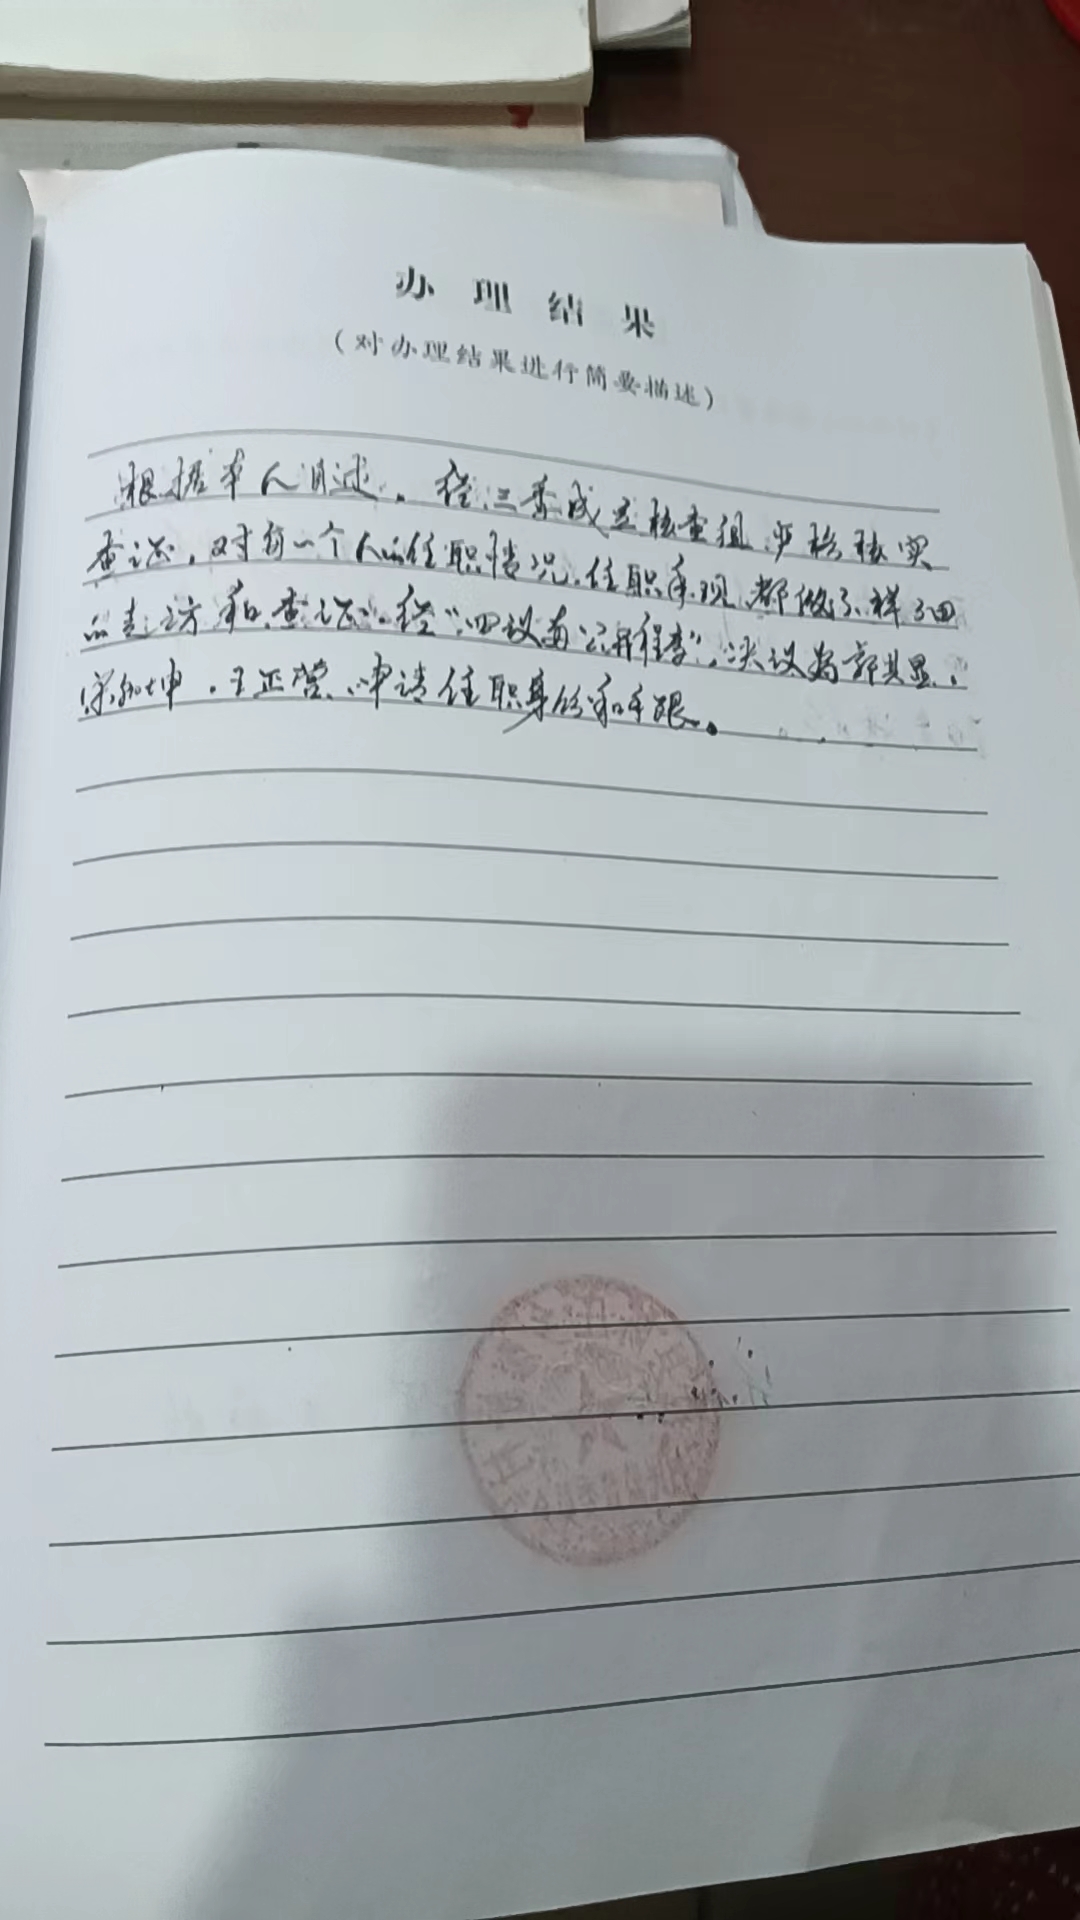 办理结果
（对办理结果进行简要描述）
根据本人自述，经三委成立核查组，严格核实
查证，对每一个人的任职情况，任职年限，都做了详细
的走访和查证。经“四议两公开程序”，决议为郭其显，
宋加坤，王正营，申请任职身份和年限。